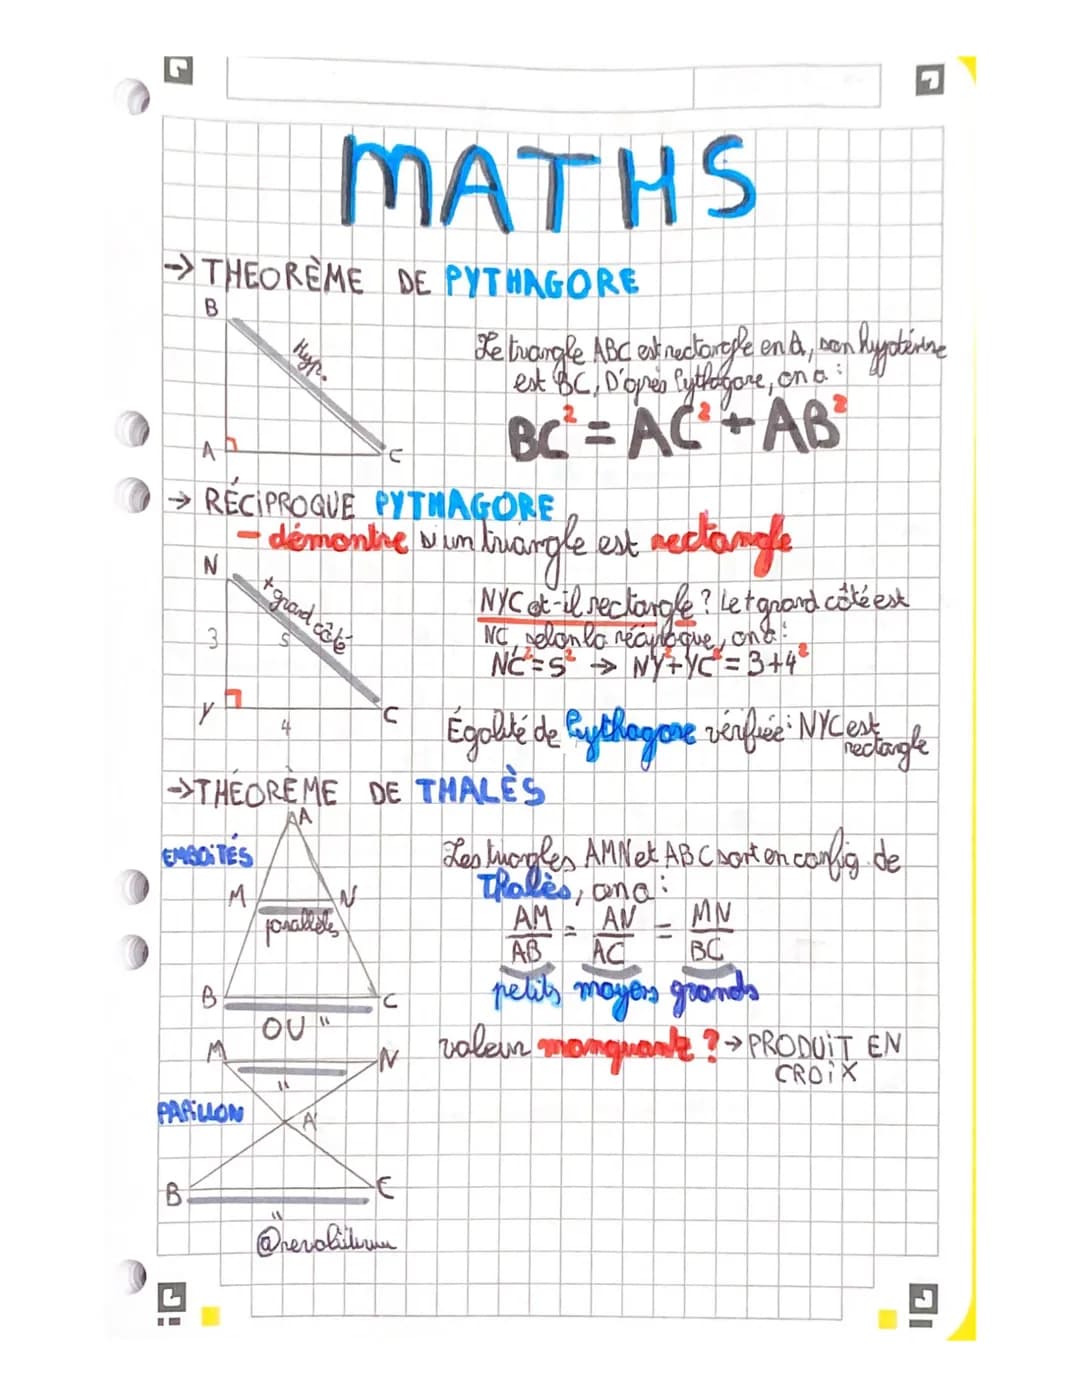 MATHS
→ THEORÈME DE PYTHAGORE
B
Hyp.
A
C
Le triangle ABC est rectangle en A, son hypoténine
est BC, D'après Pythagore, on a :
BC² = AC² + AB²
→ RÉCIPROQUE PYTHAGORE
- démontre si un triangle est rectangle
N
+ grand côté
3
5
Y
4
C
NYC est-il rectangle ? Le + grand côté est
NC, selon la réciproque, on a :
NC²=5² → NY²+YC²=3+4²
Égalité de Pythagore vérifiée : NYC est
rectangle
→THÉORÈME DE THALÈS
A
EMBOITÉS
M
N
parallèles
B
C
OU "
Les triangles AMN et ABC sont en config. de
Thalès, on a :
AM = AN = MN
AB AC BC
petits moyens grands
valeur manquante ? → PRODUIT EN
CROIX
M
N
"
PAPILLON
A
B
C
"